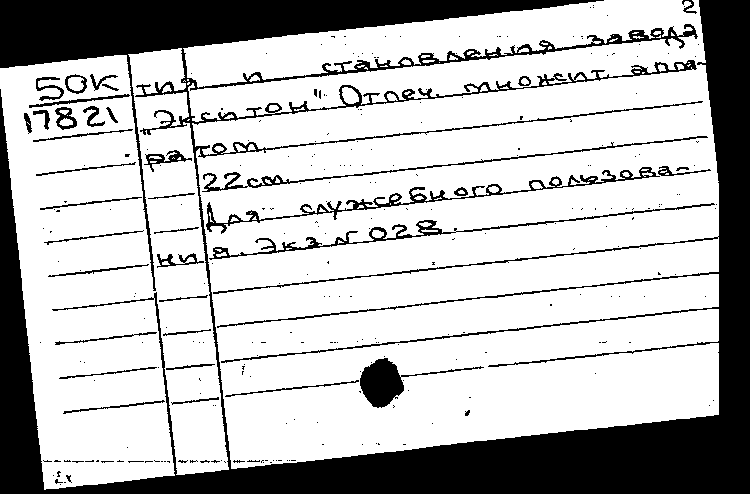 2
50К тия и становления завода
17821 „Экситон“. Отпеч. множит. аппа-
ратом.
22 см.
Для служебного пользова-
ния. Экз № 028.